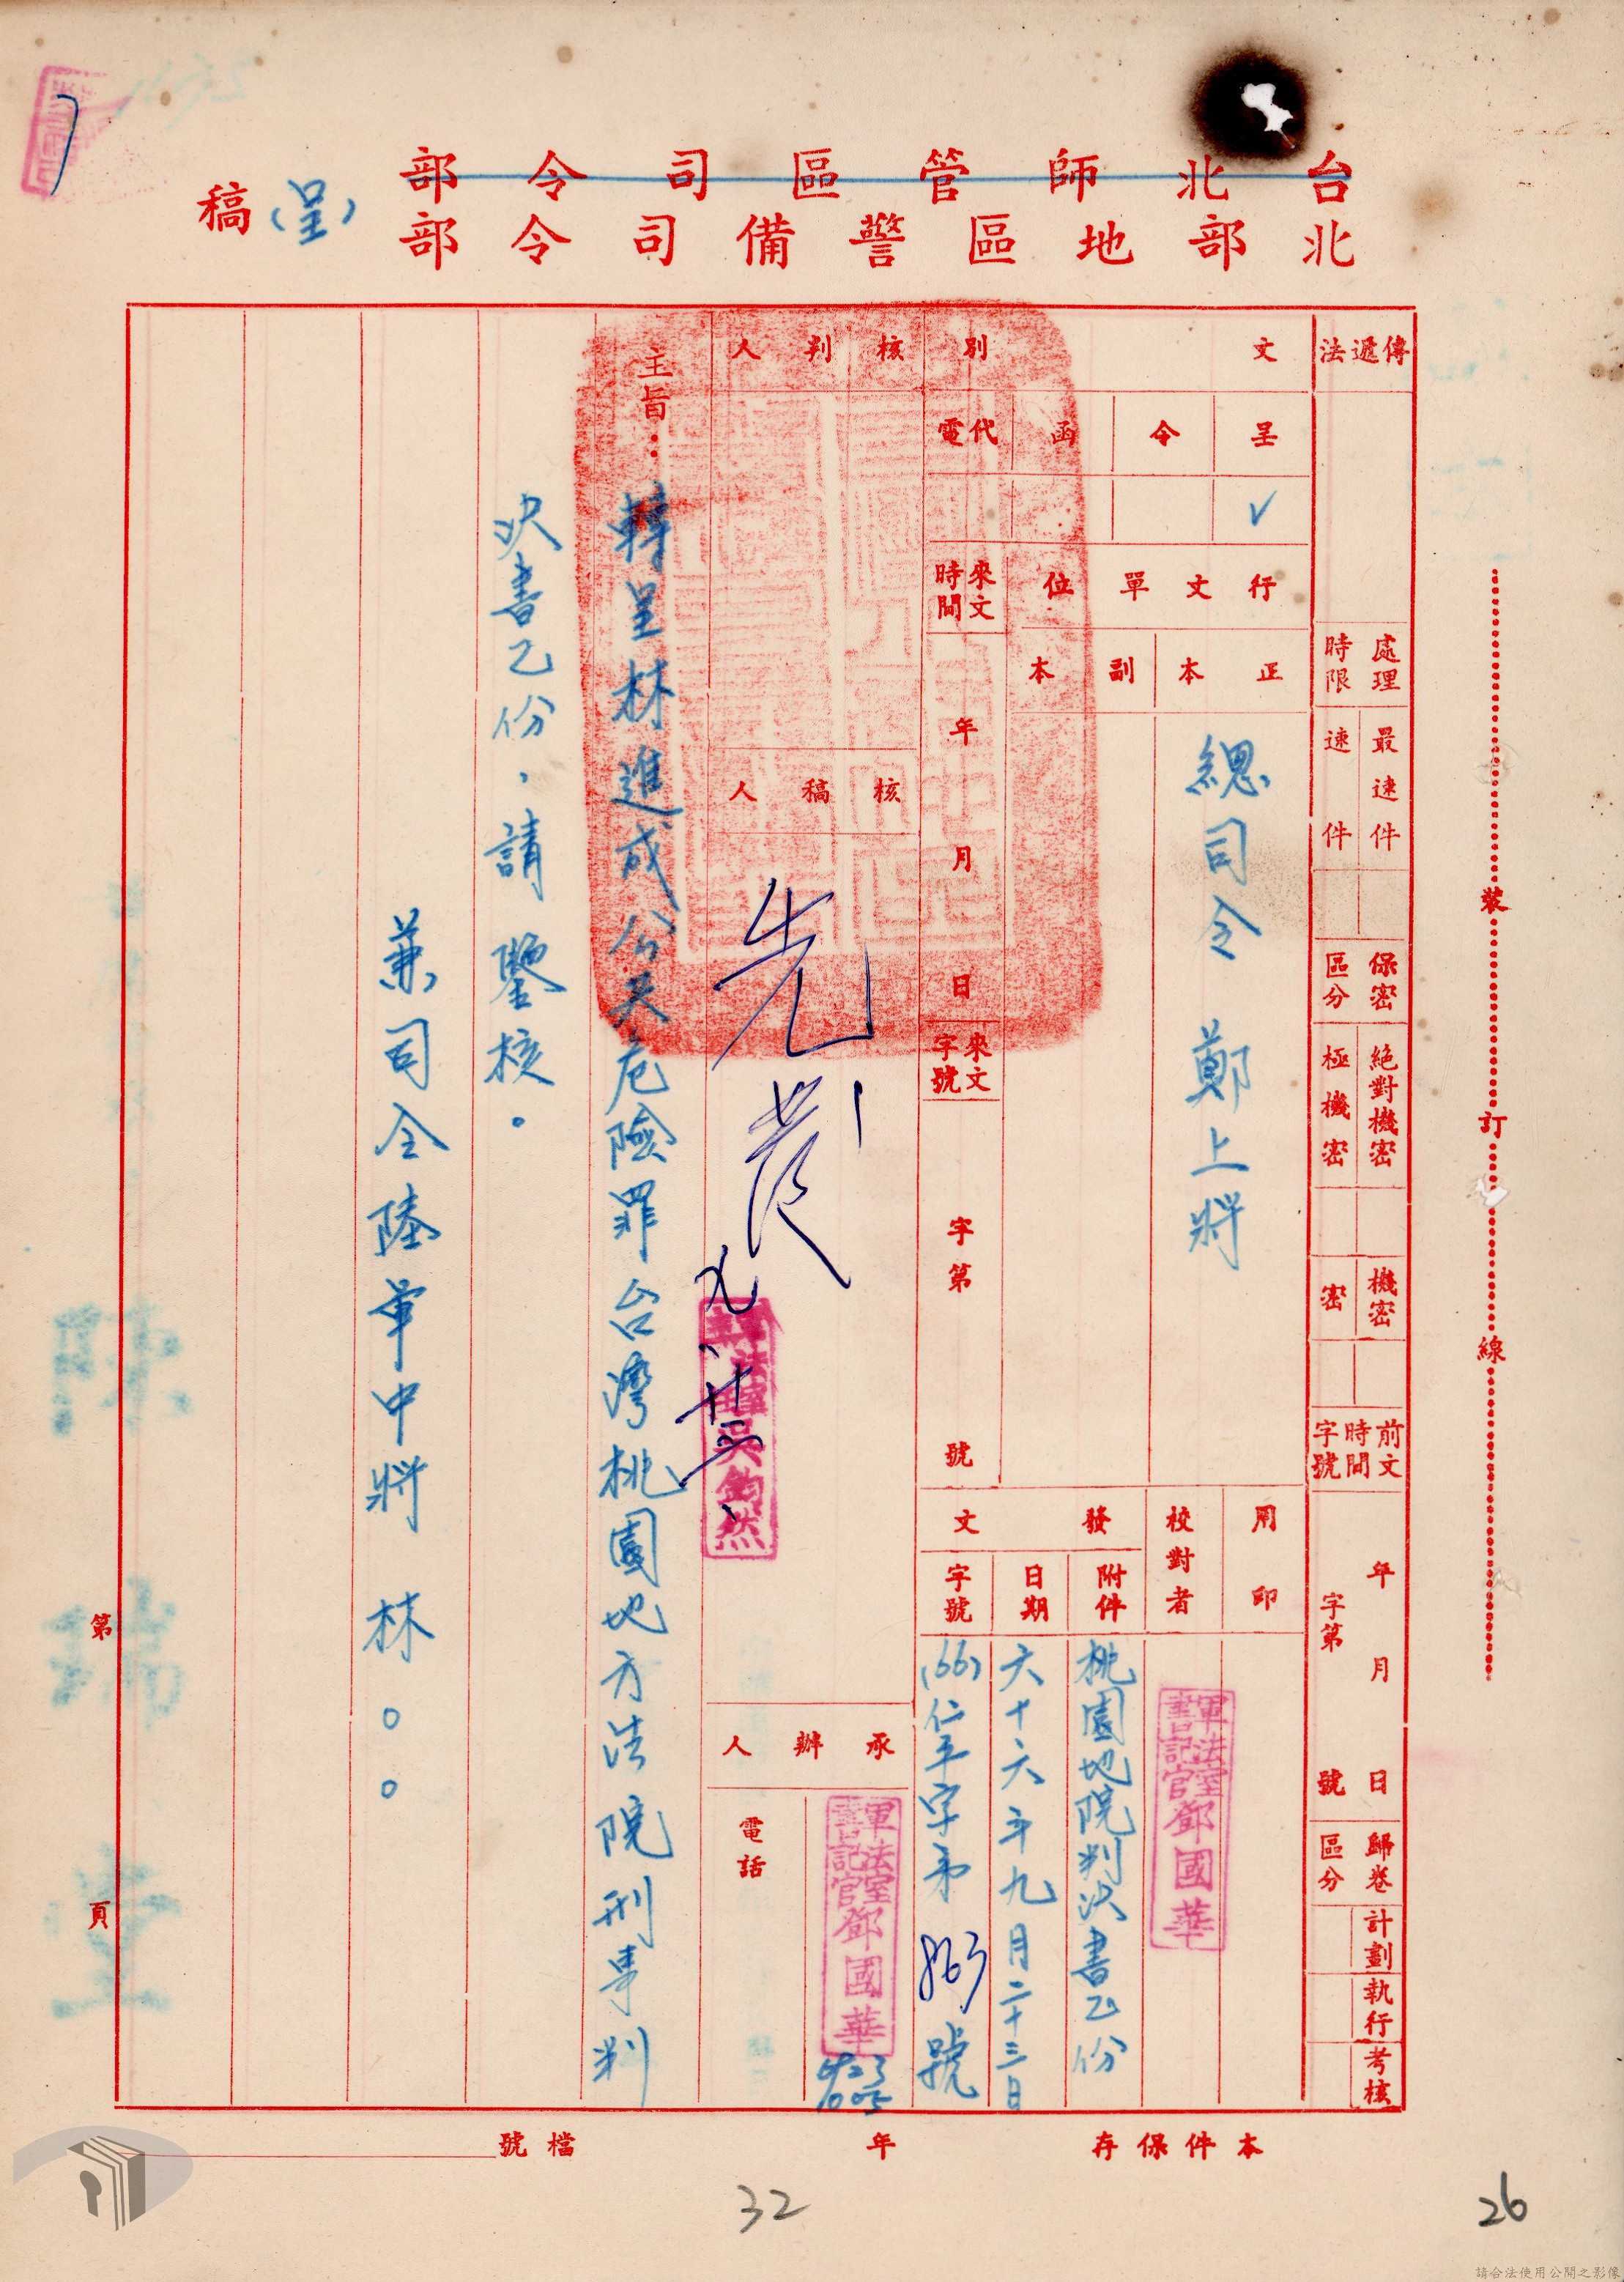 台北師管區司令部
北部地區警備司令部
(呈)
稿
傳遞法
處理時限
最速件
速件
保密區分
絕對機密
極機密
機密
密
前文時間字號
年 月 日
字第 號
歸卷區分
計劃
執行
考核
文別
呈
令
函
代電
✓
行文單位
正本
副本
總司令 鄭上將
來文時間
年 月 日
來文字號
字第 號
用印
校對者
軍法室書記官鄧國華
發文
附件
桃園地院判決書乙份
日期
六十六年九月二十三日
字號
(66)仁平字第863號
核判人
核稿人
軍法室
吳鈞然
承辦人
軍法室書記官鄧國華
電話
主旨:轉呈林進成公共危險罪台灣桃園地方法院刑事判
決書乙份,請 鑒核。
兼司令陸軍中將 林○○
第 頁
裝 訂 線
本件保存 年
檔號
32
26
請合法使用公開之影像